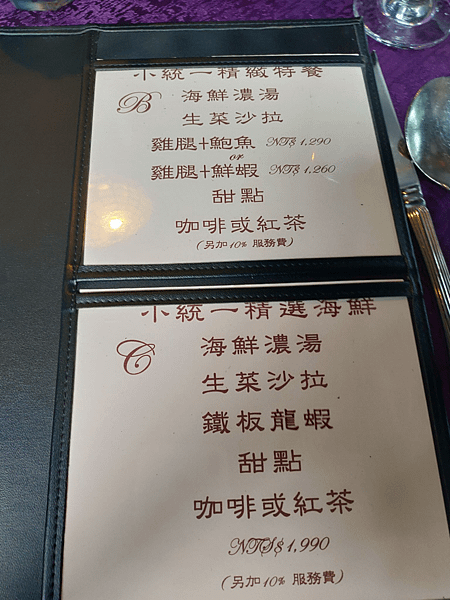 小統一精緻特餐
B
海鮮濃湯
生菜沙拉
雞腿+鮑魚 NT$ 1,290
or
雞腿+鮮蝦 NT$ 1,260
甜點
咖啡或紅茶
(另加10% 服務費)
小統一精選海鮮
C
海鮮濃湯
生菜沙拉
鐵板龍蝦
甜點
咖啡或紅茶
NTS$ 1,990
(另加10% 服務費)